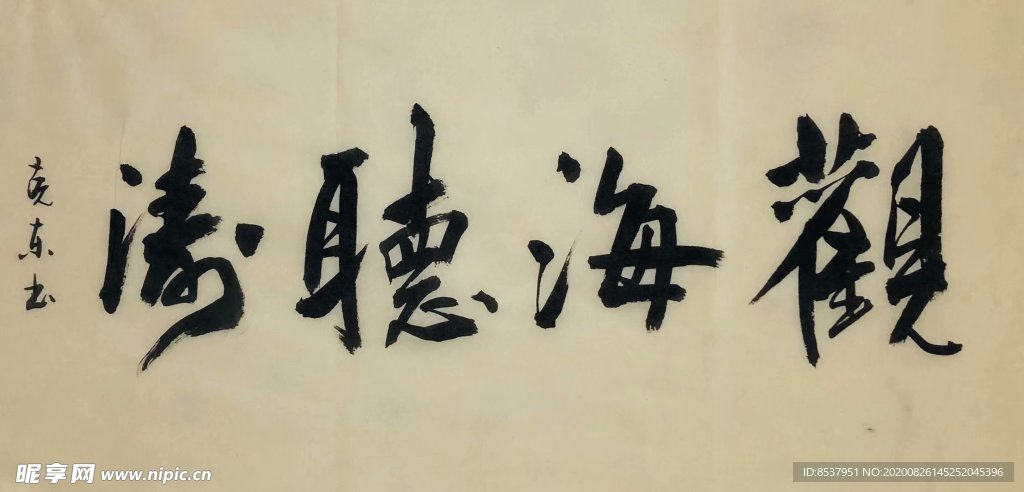 觀海聽濤
尭东书
昵享网 www.nipic.cn
ID:8537951 NO:20200826145252045396